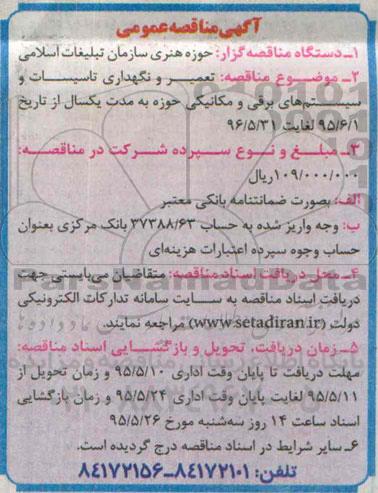 آگهی مناقصه عمومی
۱ـ دستگاه مناقصه گزار: حوزه هنری سازمان تبلیغات اسلامی
۲ـ موضوع مناقصه: تعمیر و نگهداری تاسیسات و
سیستم‌های برقی و مکانیکی حوزه به مدت یکسال از تاریخ
۹۵/۶/۱ لغایت ۹۶/۵/۳۱
۳ـ مبلغ و نوع سپرده شرکت در مناقصه:
۱۰۹/۰۰۰/۰۰۰ریال
الف: بصورت ضمانتنامه بانکی معتبر
ب: وجه واریز شده به حساب ۳۷۳۸۸/۶۳ بانک مرکزی بعنوان
حساب وجوه سپرده اعتبارات هزینه‌ای
۴ـ محل دریافت اسناد مناقصه: متقاضیان می‌بایستی جهت
دریافت اسناد مناقصه به سایت سامانه تدارکات الکترونیکی
دولت (www.setadiran.ir) مراجعه نمایند.
۵ـ زمان دریافت، تحویل و بازگشایی اسناد مناقصه:
مهلت دریافت تا پایان وقت اداری ۹۵/۵/۱۰ و زمان تحویل از
۹۵/۵/۱۱ لغایت پایان وقت اداری ۹۵/۵/۲۴ و زمان بازگشایی
اسناد ساعت ۱۴ روز سه‌شنبه مورخ ۹۵/۵/۲۶
۶ـ سایر شرایط در اسناد مناقصه درج گردیده است.
تلفن: ۸۴۱۷۲۱۰۱-۸۴۱۷۲۱۵۶
ParsNamadData